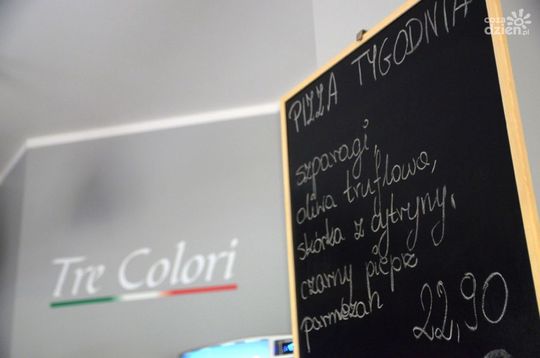 cozadzień.pl
PIZZA TYGODNIA
szparagi,
oliwa truflowa,
skórka z cytryny,
czarny pieprz
parmezan
22,90
Tre Colori